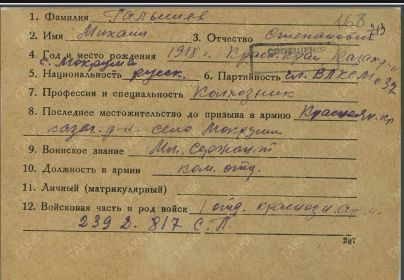 1. Фамилия Гальшиев 168
2. Имя Михаил 3. Отчество Степанович 213
СООБЩЕНО
4. Год и место рождения 1918 г. Красн. край Казач. р-н
с. Мокруша
5. Национальность русск. 6. Партийность чл. ВЛКСМ с 37
7. Профессия и специальность Колхозник
8. Последнее местожительство до призыва в армию Краснояр. кр.
казач. р-н. село Мокруша
9. Воинское звание Мл. сержант
10. Должность в армии ком. отд.
11. Личный (матрикулярный)
12. Войсковая часть и род войск 1 отд. краснозн. армия
239 д. 817 С. П.
287